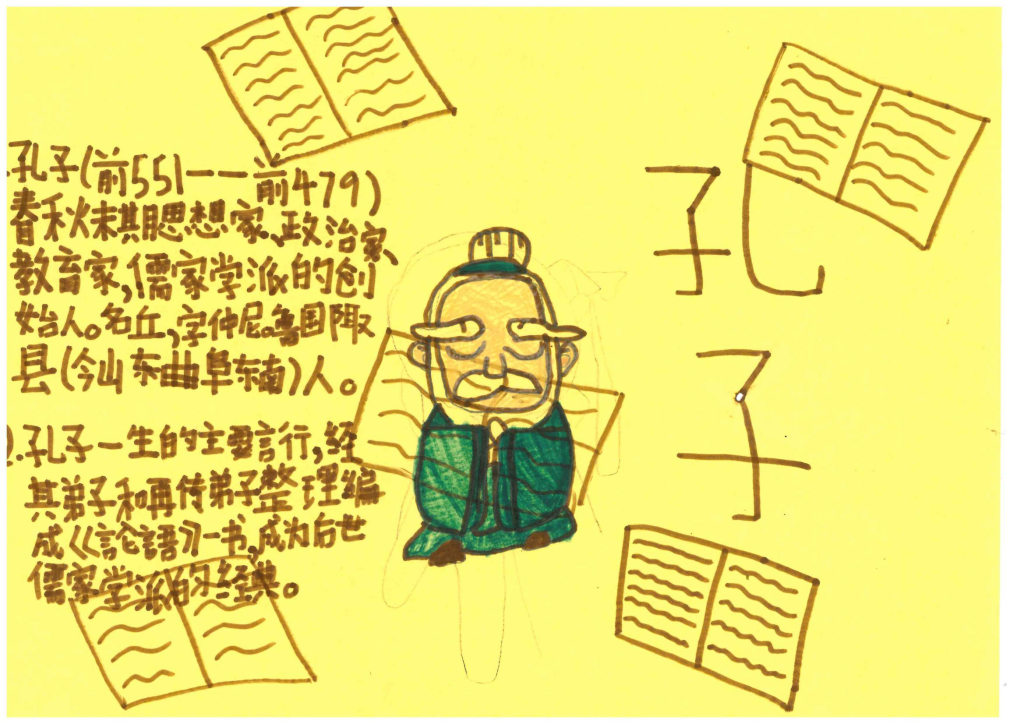 .孔子(前551一一前479)
春秋末期思想家、政治家、
教育家,儒家学派的创
始人。名丘,字仲尼。鲁国陬
县(今山东曲阜东南)人。
).孔子一生的主要言行,经
其弟子和再传弟子整理编
成《論語》一书,成为后世
儒家学派的经典。
孔
子